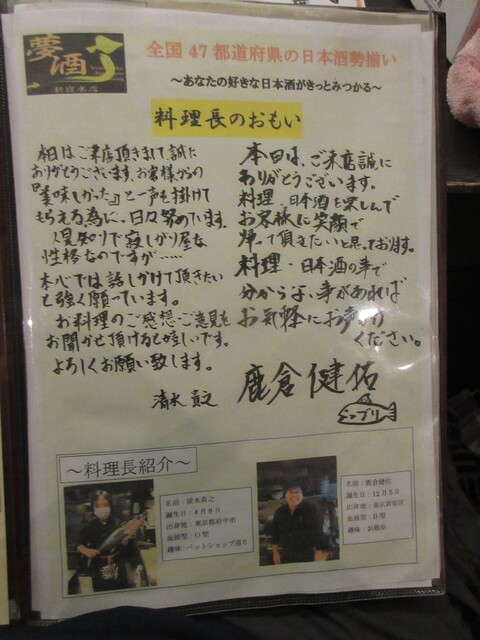 夢酒
新宿本店
全国47都道府県の日本酒勢揃い
～あなたの好きな日本酒がきっとみつかる～
料理長のおもい
本日はご来店頂きまして誠に
ありがとうございます。お客様からの
『美味しかった』と一声を掛けて
もらえる為に、日々努めています。
人見知りで寂しがり屋な
性格なのですが……
本心では話しかけて頂きたい
と強く願っています。
お料理のご感想・ご意見を
お聞かせ頂けると嬉しいです。
よろしくお願い致します。
清水 貴之
本日は、ご来店誠に
ありがとうございます。
料理・日本酒を楽しんで
お客様に笑顔で
帰って頂きたいと思っております。
料理・日本酒の事で
分からない事があれば
お気軽にお声がけ
ください。
鹿倉健佑
～料理長紹介～
名前：清水貴之
誕生日：4月8日
出身地：東京都府中市
血液型：O型
趣味：ペットショップ巡り
名前：鹿倉健佑
誕生日：12月5日
出身地：東京新宿区
血液型：B型
趣味：お散歩